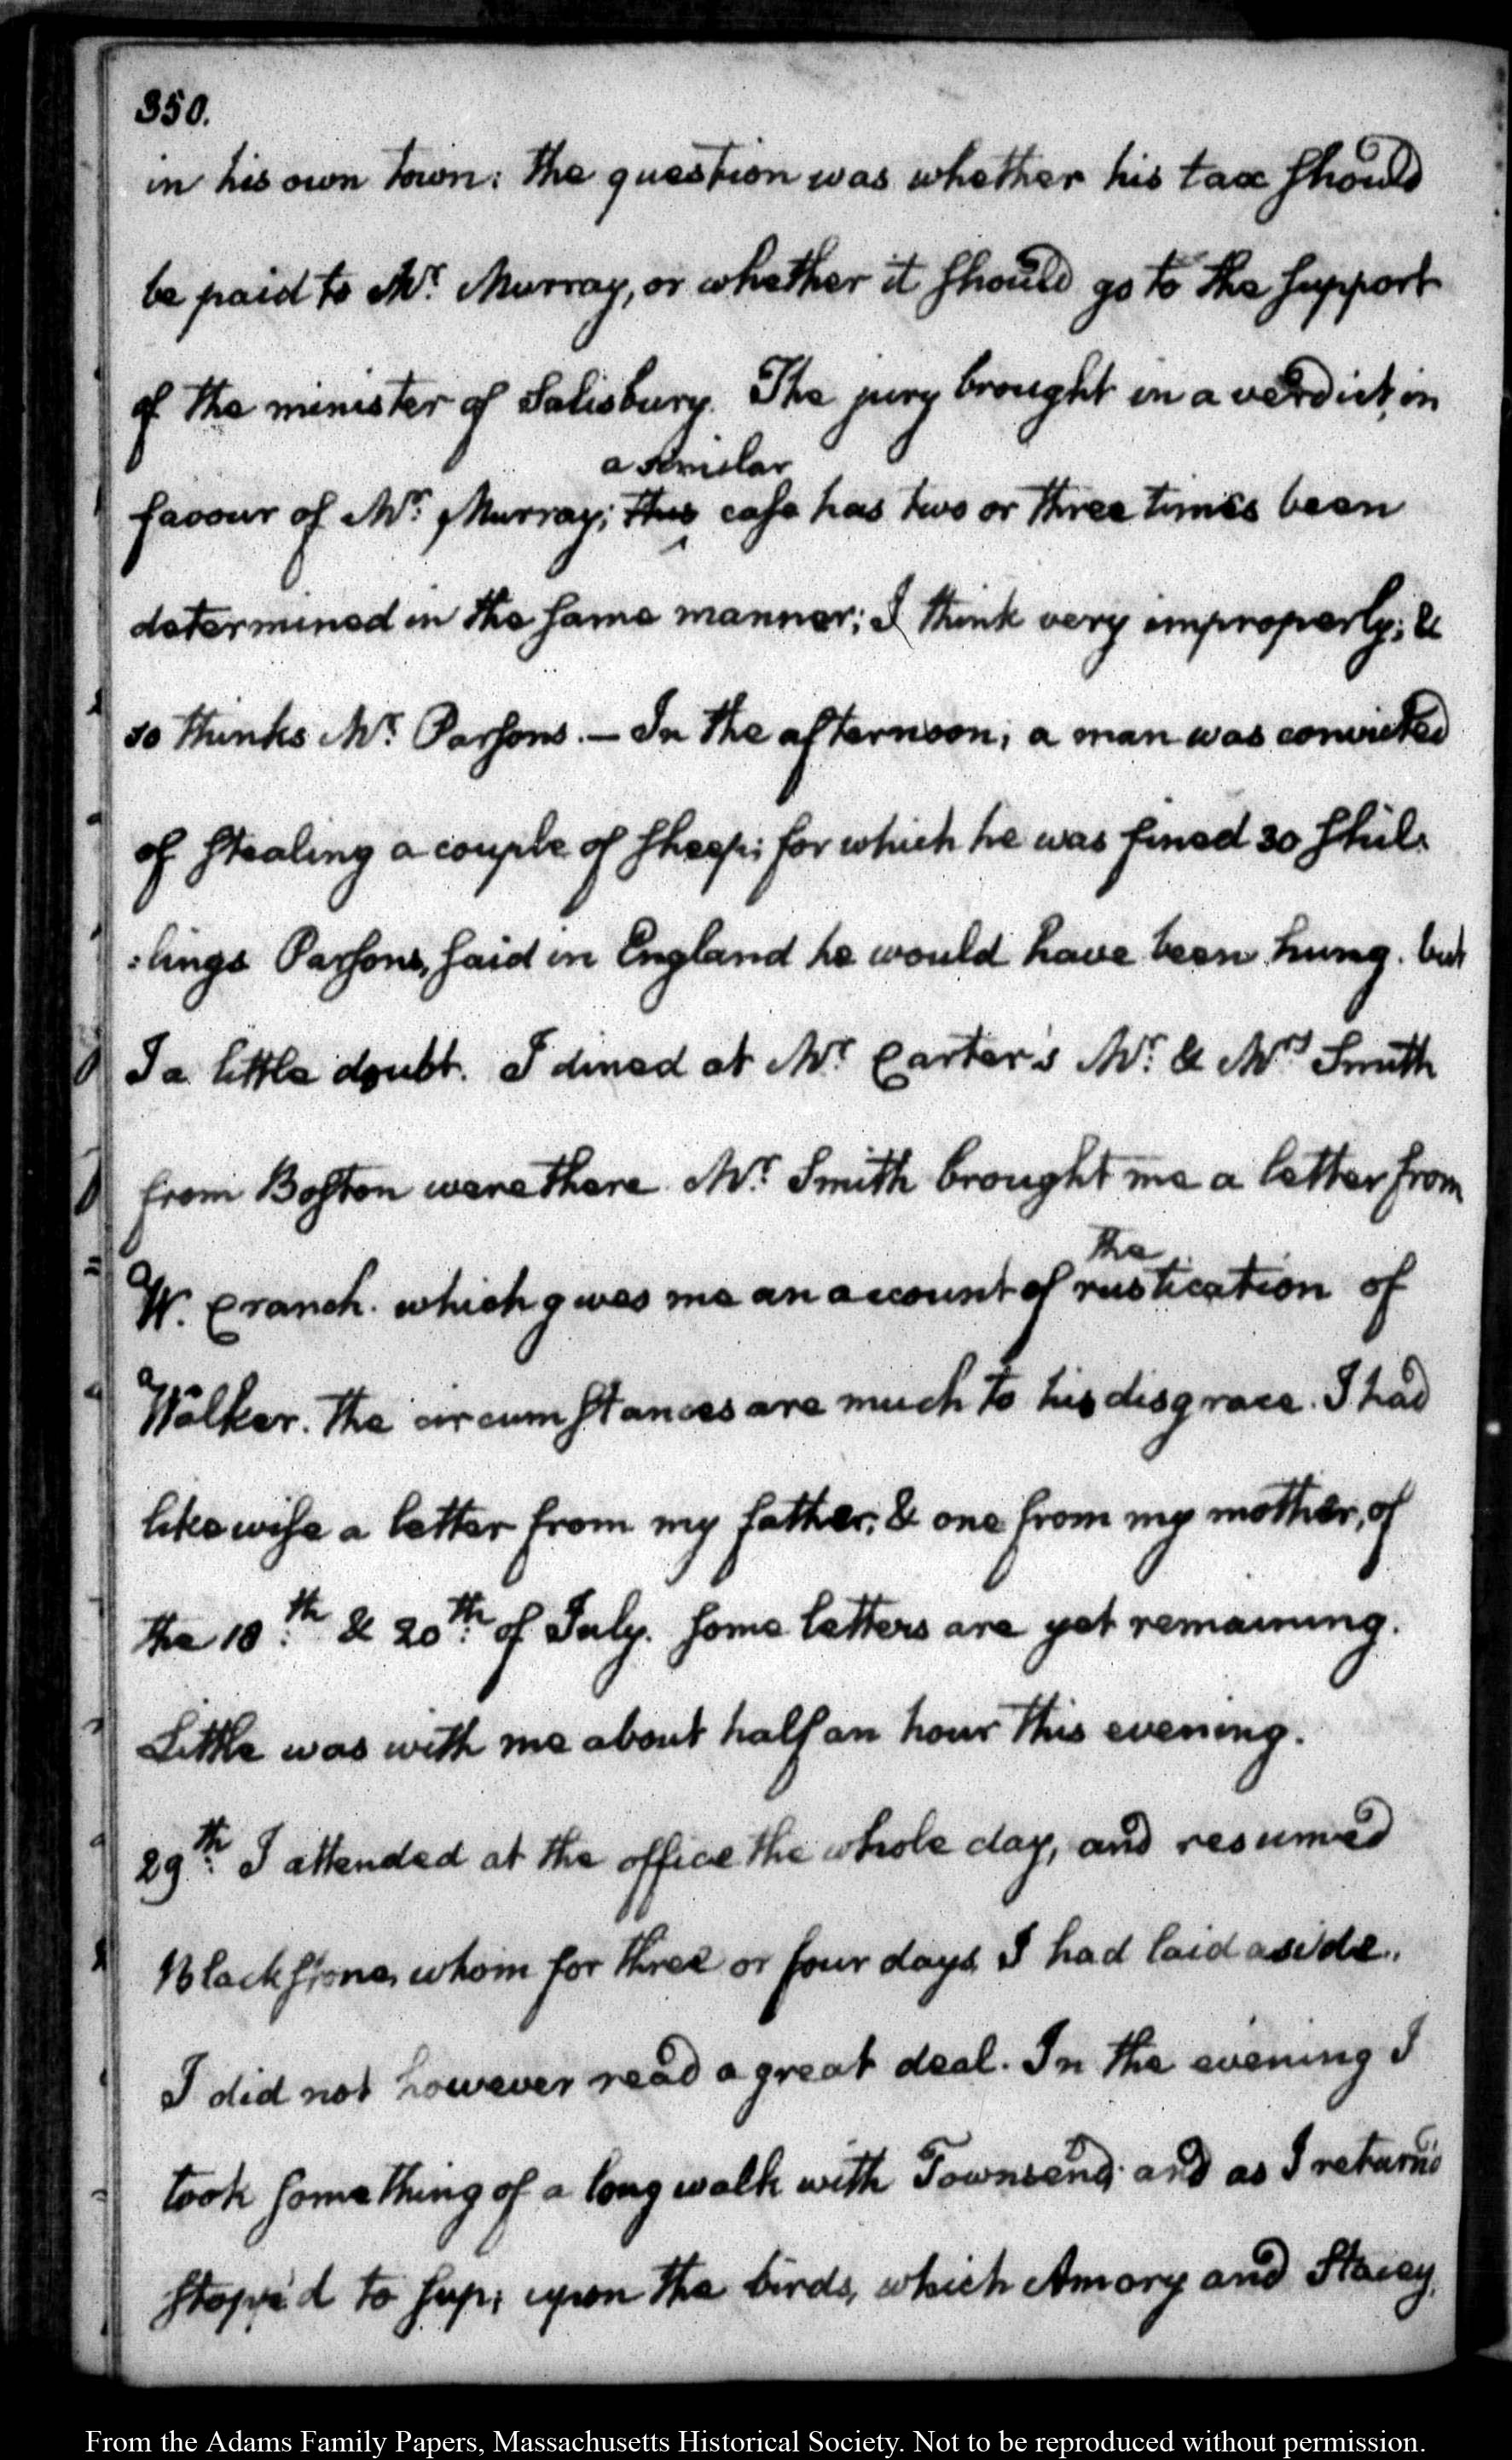 350.
in his own town: the question was whether his tax should
be paid to Mr. Murray, or whether it should go to the support
of the minister of Salisbury. The jury brought in a verdict, in
a similar
favour of Mr. Murray; this case has two or three times been
determined in the same manner; I think very improperly; &
so thinks Mr. Parsons. — In the afternoon; a man was convicted
of stealing a couple of sheep; for which he was fined 30 shil:
:lings Parsons, said in England he would have been hung. but
I a little doubt. I dined at Mr. Carter's Mr. & Mrs Smith
from Boston were there. Mr. Smith brought me a letter from
the
W. Cranch. which gives me an account of rustication of
Walker. the circumstances are much to his disgrace. I had
likewise a letter from my father; & one from my mother, of
the 18th. & 20th. of July. some letters are yet remaining.
Little was with me about half an hour this evening.
29th. I attended at the office the whole day, and resumed
Blackstone, whom for three or four days I had laid aside.
I did not however read a great deal. In the evening I
took something of a long walk with Townsend; and as I return'd
stopp'd to sup; upon the birds, which Amory and Stacey,
From the Adams Family Papers, Massachusetts Historical Society. Not to be reproduced without permission.